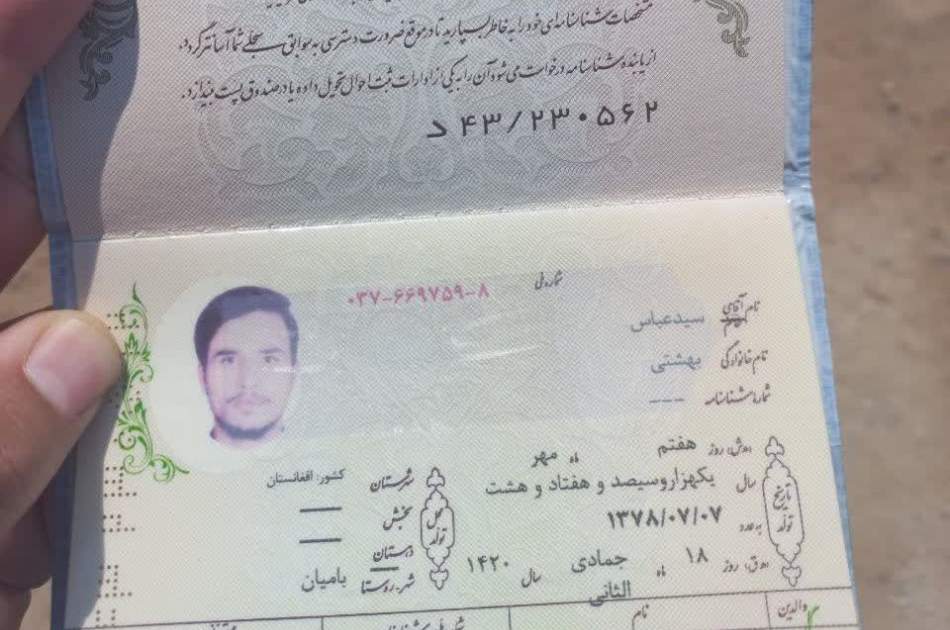 مشخصات شناسنامه‌ای خود را به خاطر بسپارید تا در موقع ضرورت دسترسی به سوابق سجلی شما آسانتر گردد.
از یابنده شناسنامه درخواست می شود آن را به یکی از ادارات ثبت احوال تحویل داده یا در صندوق پست بیندازد.
د ۴۳/۲۳۰۵۶۲
شماره ملی ۰۳۷-۶۶۹۷۵۹-۸
نام آقای سیدعباس
نام خانوادگی بهشتی
شماره شناسنامه ---
تاریخ تولد
ه.ش: روز هفتم ماه مهر
سال یکهزاروسیصد و هفتاد و هشت
به عدد ۱۳۷۸/۰۷/۰۷
ه.ق: روز ۱۸ ماه جمادی الثانی سال ۱۴۲۰
محل تولد
شهرستان کشور: افغانستان
بخش —
دهستان —
شهر، روستا بامیان
والدین
نام